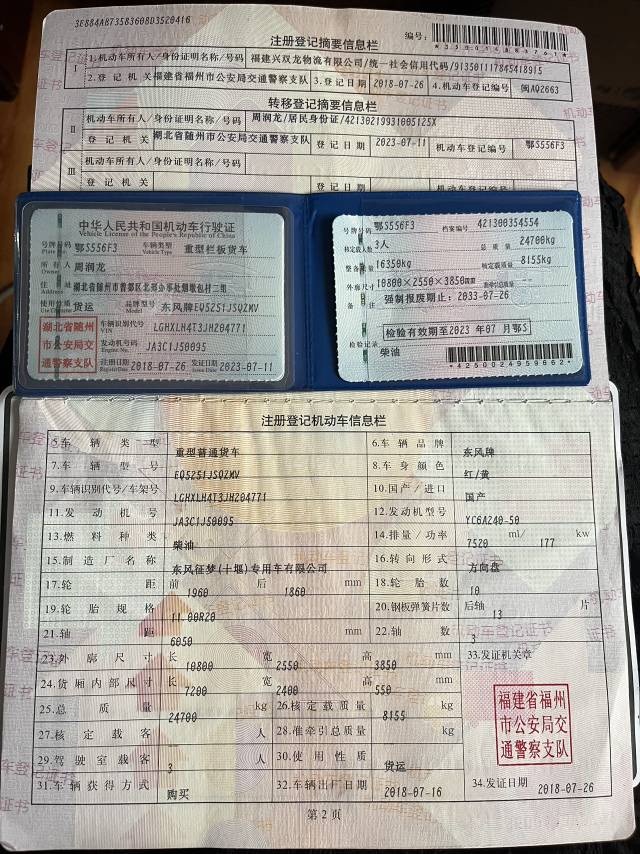 3E884AB73583608D3520416
注册登记摘要信息栏
编号:
*350014883761*
I
1.机动车所有人/身份证明名称/号码 福建兴双龙物流有限公司/统一社会信用代码/913501117845418915
2.登记机关 福建省福州市公安局交通警察支队 3.登记日期 2018-07-26 4.机动车登记编号 闽AQ2663
转移登记摘要信息栏
II
机动车所有人/身份证明名称/号码 周润龙/居民身份证/42130219931005125X
登记机关 湖北省随州市公安局交通警察支队 登记日期 2023-07-11 机动车登记编号 鄂S556F3
III
机动车所有人/身份证明名称/号码
登记机关 登记日期 机动车登记编号
中华人民共和国机动车行驶证
Vehicle License of the People's Republic of China
号牌号码 鄂S556F3 车辆类型 重型栏板货车
Plate No. Vehicle Type
所有人 周润龙
Owner
住址 湖北省随州市曾都区北郊办事处烟墩包村二组
Address
使用性质 货运 品牌型号 东风牌EQ5251JSQZMV
Model
湖北省随州市公安局交通警察支队
车辆识别代号 LGHXLH4T3JH204771
VIN
发动机号码 JA3C1J50095
Engine No.
注册日期 2018-07-26 发证日期 2023-07-11
Register Date Issue Date
号牌号码 鄂S556F3 档案编号 421300354554
核定载人数 3人 总质量 24700kg
整备质量 16350kg 核定载质量 8155kg
外廓尺寸 10800×2550×3850mm 准牵引总质量
备注 强制报废期止:2033-07-26
检验有效期至2023年07月鄂S
检验记录 柴油
*4250024959862*
注册登记机动车信息栏
5.车辆类型 重型普通货车 6.车辆品牌 东风牌
7.车辆型号 EQ5251JSQZMV 8.车身颜色 红/黄
9.车辆识别代号/车架号 LGHXLH4T3JH204771 10.国产/进口 国产
11.发动机号 JA3C1J50095 12.发动机型号 YC6A240-50
13.燃料种类 柴油 14.排量/功率 7520 ml/ 177 kw
15.制造厂名称 东风征梦(十堰)专用车有限公司 16.转向形式 方向盘
17.轮距 前 1960 后 1860 mm 18.轮胎数 10
19.轮胎规格 11.00R20 20.钢板弹簧片数 后轴 13 片
21.轴距 6050 mm 22.轴数 3
23.外廓尺寸 长 10800 宽 2550 高 3850 mm 33.发证机关章
24.货厢内部尺寸 长 7200 宽 2400 高 550 mm
25.总质量 24700 kg 26.核定载质量 8155 kg
27.核定载客 -- 人 28.准牵引总质量 -- kg
29.驾驶室载客 3 人 30.使用性质 货运
31.车辆获得方式 购买 32.车辆出厂日期 2018-07-16 34.发证日期 2018-07-26
福建省福州市公安局交通警察支队
第2页